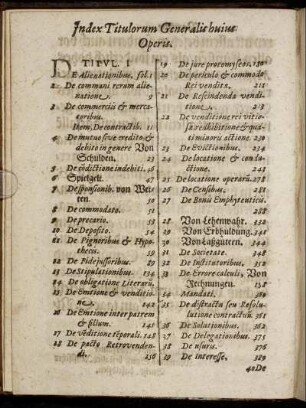 Index Titulorum Generalis huius
Operis.
TITVL. I
DE Alienationibus. fol. 1
2 De communi rerum alie-
natione. 9
3 De commerciis & merca-
toribus.
Item, De contractib. 11
4 De mutuo sive credito &
debito in genere Von
Schulden. 23
5 De indebiti. 46
6 Spielgelt. 47
7 De sponsionib. von Wet-
ten. 50
8 De commodato. 51
9 De precario. 53
10 De Deposito. 54
11 De Pignoribus & Hypo-
thecis. 59
12 De Fidejussoribus. 89
13 De Stipulationibus. 134
14 De obligatione Literarũ.
15 De Emtione & venditio-
ne. 142
16 De Emtione inter patrem
& filium. 241
17 De vẽditione tẽporali. 242
18 De pacto Retrovenden-
di. 236
19 De jure protomyseos. 250
20 De periculo & commodo
Rei venditæ. 251
21 De Rescindenda vendi-
tione 253
22 De venditione rei vitio-
sæ redhibitione & quan-
ti minoris actione. 230
23 De Evictionibus.
24 De locatione & condu-
ctione. 241
25 De locatione operarũ. 278
26 De Censibus. 281
27 De Bonis Emphyteuticis.
28 Von Lehenwahr. 292
29 Von Erbhuldung. 342
30 Von Laßgütern. 344
31 De Societate. 348
32 De Institoribus. 352
33 De Errore calculi, Von
Rechnungen. 358
34 Mandati.
35 De distractu seu Resolu-
tione contractuũ 361
36 De Solutionibus. 362
37 De Delegationibus.
38 De usuris.
39 De interesse. 389
40 De